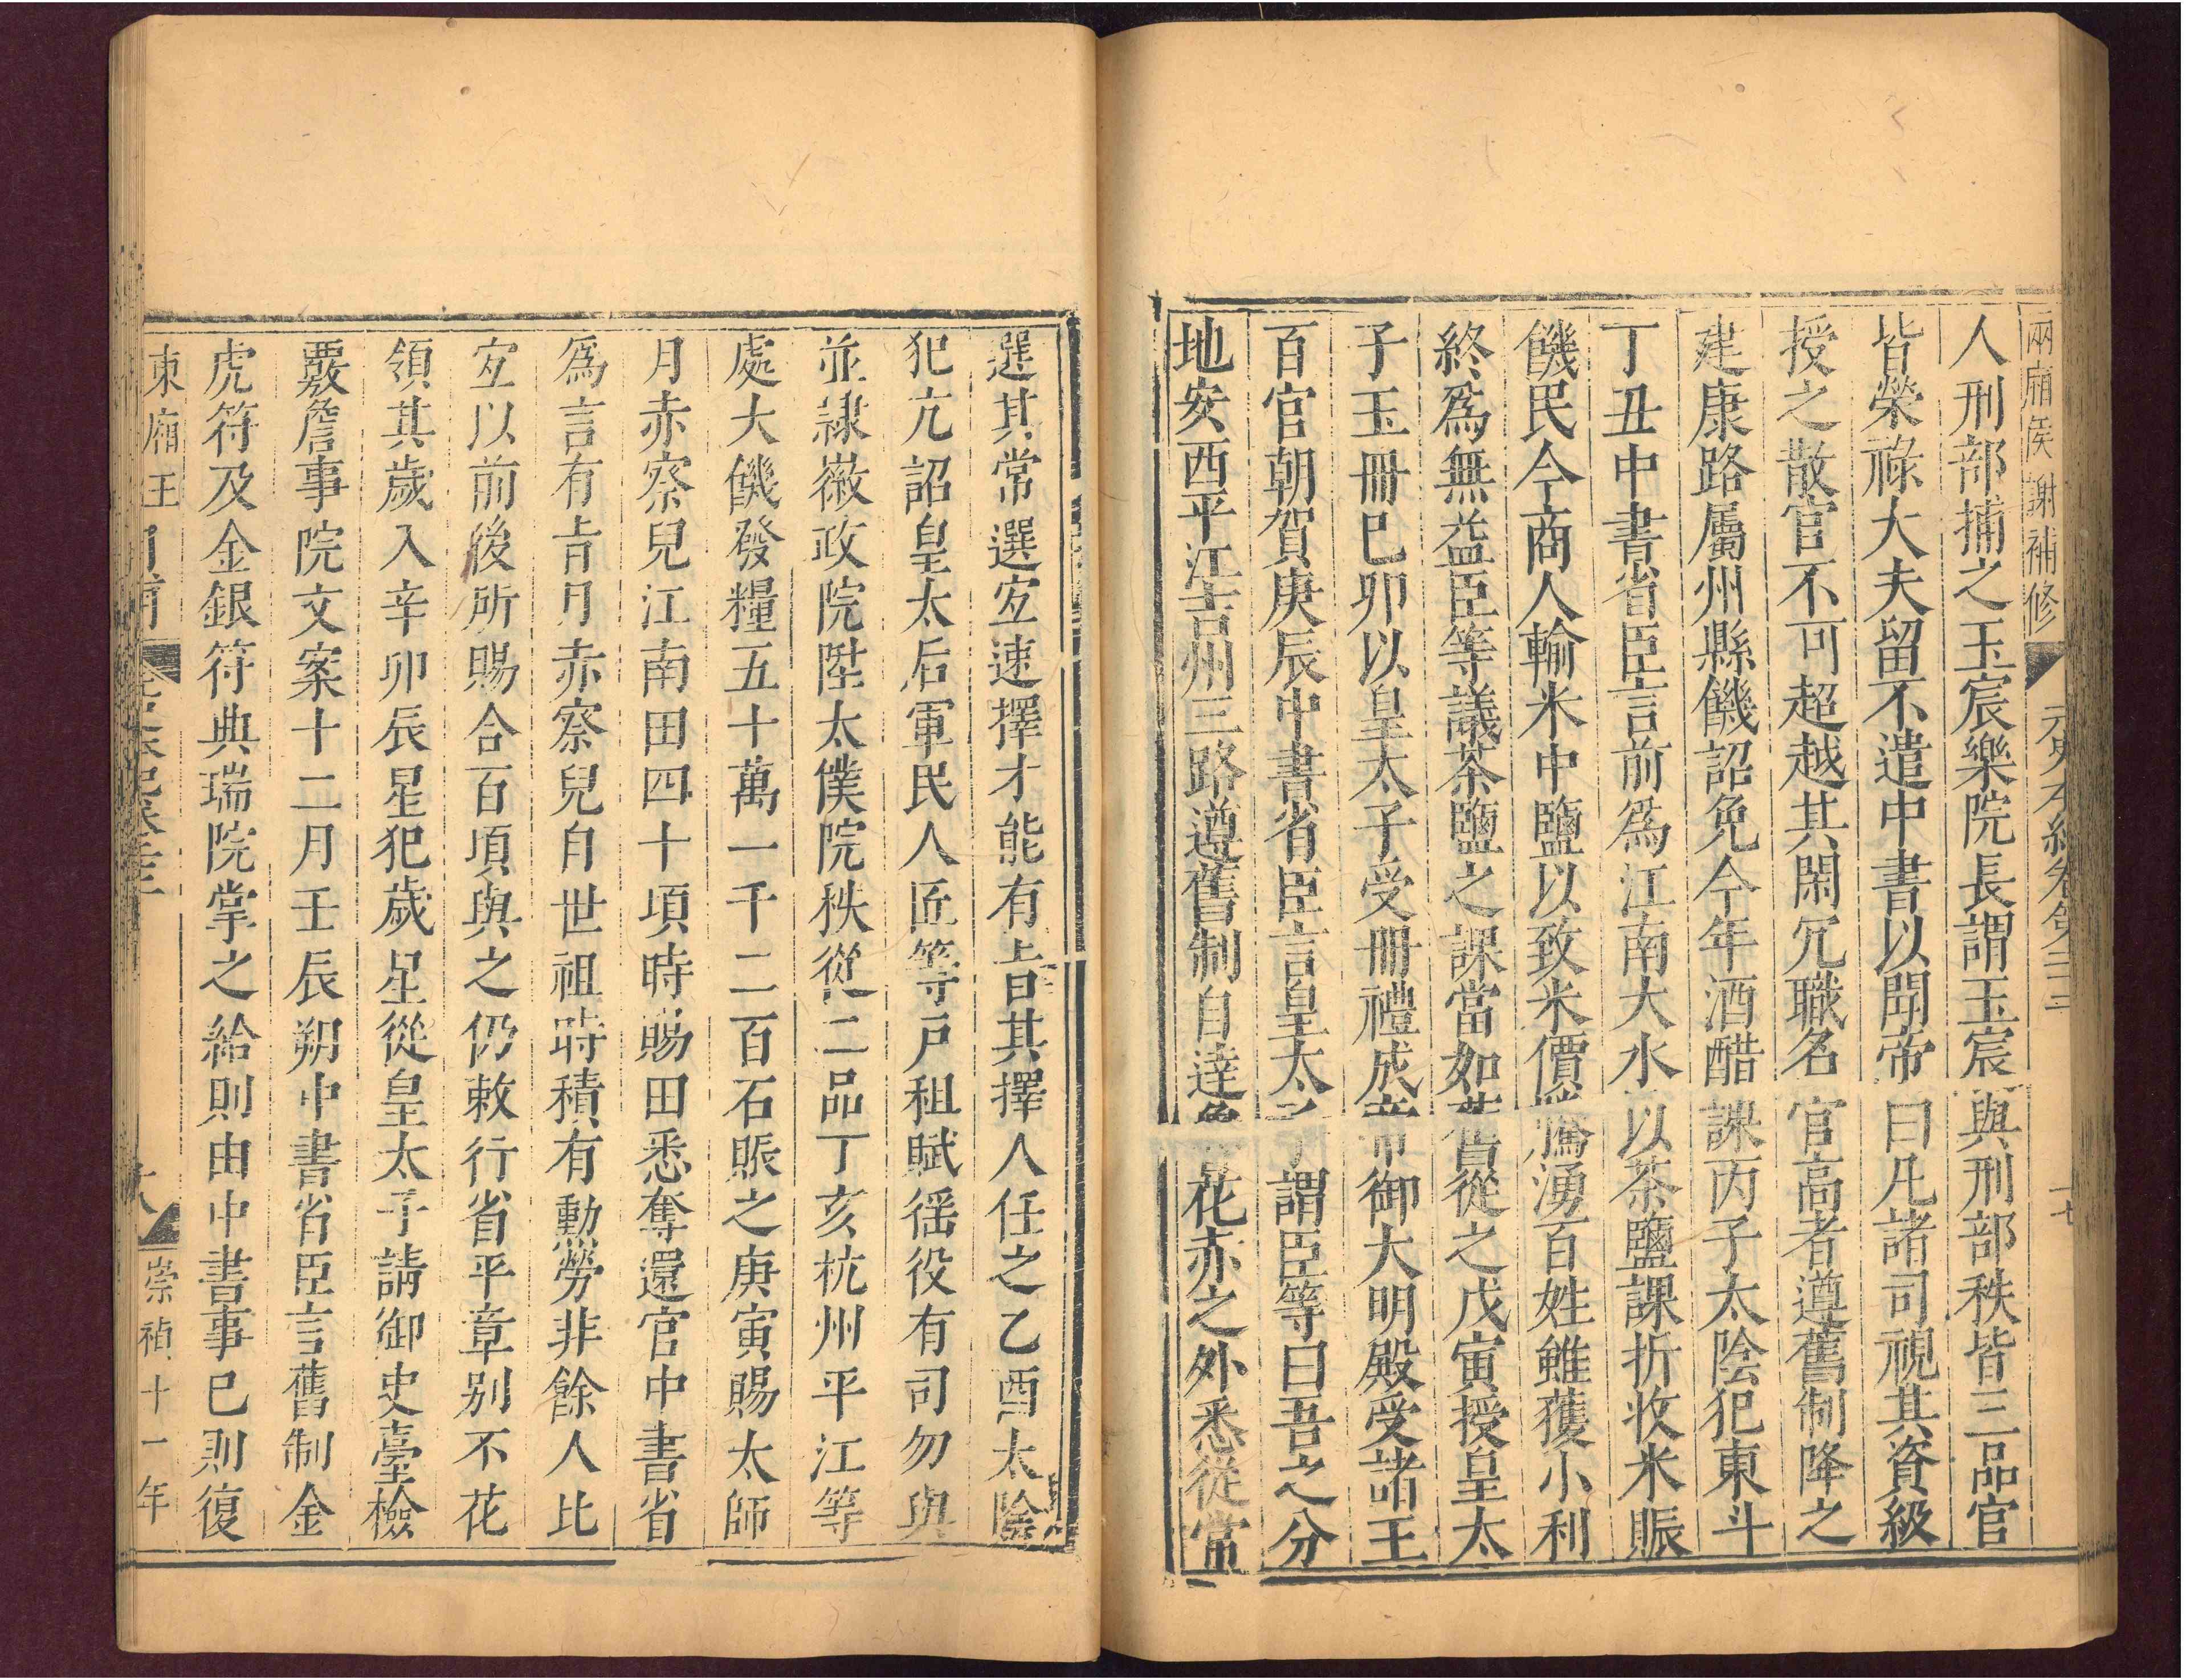 兩廂侯謝補修 元史本紀卷第二十二 十七
人刑部捕之玉宸樂院長謂玉宸與刑部秩皆三品官
皆榮祿大夫留不遣中書以聞帝曰凡諸司視其資級
授之散官不可超越其閑冗職名官高者遵舊制降之
建康路屬州縣饑詔免今年酒醋課丙子太陰犯東斗
丁丑中書省臣言前爲江南大水以茶鹽課折收米賑
饑民今商人輸米中鹽以致米價騰湧百姓雖獲小利
終爲無益臣等議茶鹽之課當如舊從之戊寅授皇太
子玉冊巳卯以皇太子受冊禮成帝御大明殿受諸王
百官朝賀庚辰中書省臣言皇太子謂臣等曰吾之分
地安西平江吉州三路遵舊制自達魯花赤之外悉從常
選其常選宜速擇才能有旨其擇人任之乙酉太陰
犯亢詔皇太后軍民人匠等戶租賦徭役有司勿與
並隷徽政院陞太僕院秩從二品丁亥杭州平江等
處大饑發糧五十萬一千二百石賑之庚寅賜太師
月赤察兒江南田四十頃時賜田悉奪還官中書省
爲言有旨月赤察兒自世祖時積有勳勞非餘人比
宜以前後所賜合百頃與之仍敕行省平章別不花
領其歲入辛卯辰星犯歲星從皇太子請御史臺檢
覈詹事院文案十二月壬辰朔中書省臣言舊制金
虎符及金銀符典瑞院掌之給則由中書事已則復
東廂王 十八 崇禎十一年